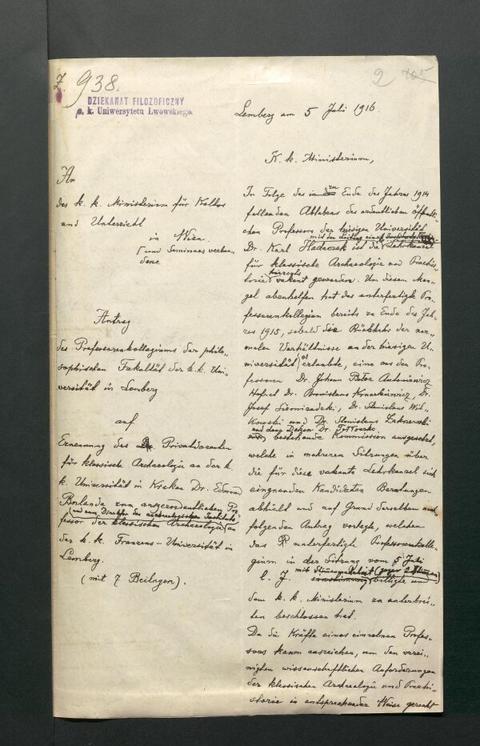 Z. 938.
2
DZIEKANAT FILOZOFICZNY
c. k. Uniwersytetu Lwowskiego.
Lemberg am 5 Juli 1916
An
das k. k. Ministerium für Kultus
und Unterricht
in Wien.
Antrag
des Professorenkollegiums der philo-
sophischen Fakultät der k. k. Uni-
versität in Lemberg
auf
Ernennung des Privatdozenten
für klassische Archäologie an der k.
k. Universität in Krakau Dr. Edmund
Bulanda zum ausserordentlichen Pro-
fessor der klassischen Archäologie an
der k. k. Franzens-Universität in
Lemberg.
(mit 7 Beilagen).
K. k. Ministerium,
In Folge des zu Ende des Jahres 1914
fallenden Ablebens des ordentlichen öffentli-
chen Professors der hiesigen Universität
Dr. Karl Hadaczek ist die Lehrkanzel
für klassische Archaeologie und Praehis-
torie vakant geworden. Um diesem Man-
gel abzuhelfen hat das unterfertigte Pro-
fessorenkollegium bereits zu Ende des Jah-
res 1915, sobald die Rückkehr der nor-
malen Verhältnisse an der hiesigen Uni-
versität es erlaubte, eine aus den Pro-
fessoren Dr. Johann
Hofrat Dr. Bronislaus Kruczkiewicz, Dr.
Josef Siemiradzki, Dr. Stanislaus Wit-
kowski und Dr. Stanislaus Zakrzewski
bestehende Kommission ausgewählt,
welche in mehreren Sitzungen über
die für diese vakante Lehrkanzel sich
eignenden Kandidaten Beratungen
abhielt und auf Grund derselben
folgenden Antrag vorlegte, welchen
das unterfertigte Professorenkolle-
gium in der Sitzung vom 5 Juli
l. J. billigte und
dem k. k. Ministerium zu unterbrei-
ten beschlossen hat.
Da die Kräfte eines einzelnen Profes-
sors kaum ausreichen, um den verei-
nigten wissenschaftlichen Anforderungen
der klassischen Archaeologie und Praehi-
storie in entsprechender Weise gerecht